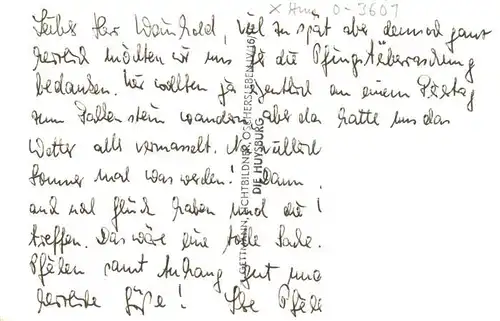 x Hmg 0-3607
Lieber Herr Weinhold, viel zu spät aber dennoch ganz
herzlich möchten wir uns für die Pfingstüberraschung
bedanken. Wir wollten ja eigentlich an einem Freitag
zum Falkenstein wandern aber da hatte uns das
Wetter alles vermasselt. Na vielleicht
Sommer mal was werden! Dann
auch mal Glück haben und die
treffen. Das wäre eine tolle Sache.
samt Anhang gut und
herzliche Grüße! Ihre
LICHTBILDNER, OSCHERSLEBEN
DIE HUYSBURG